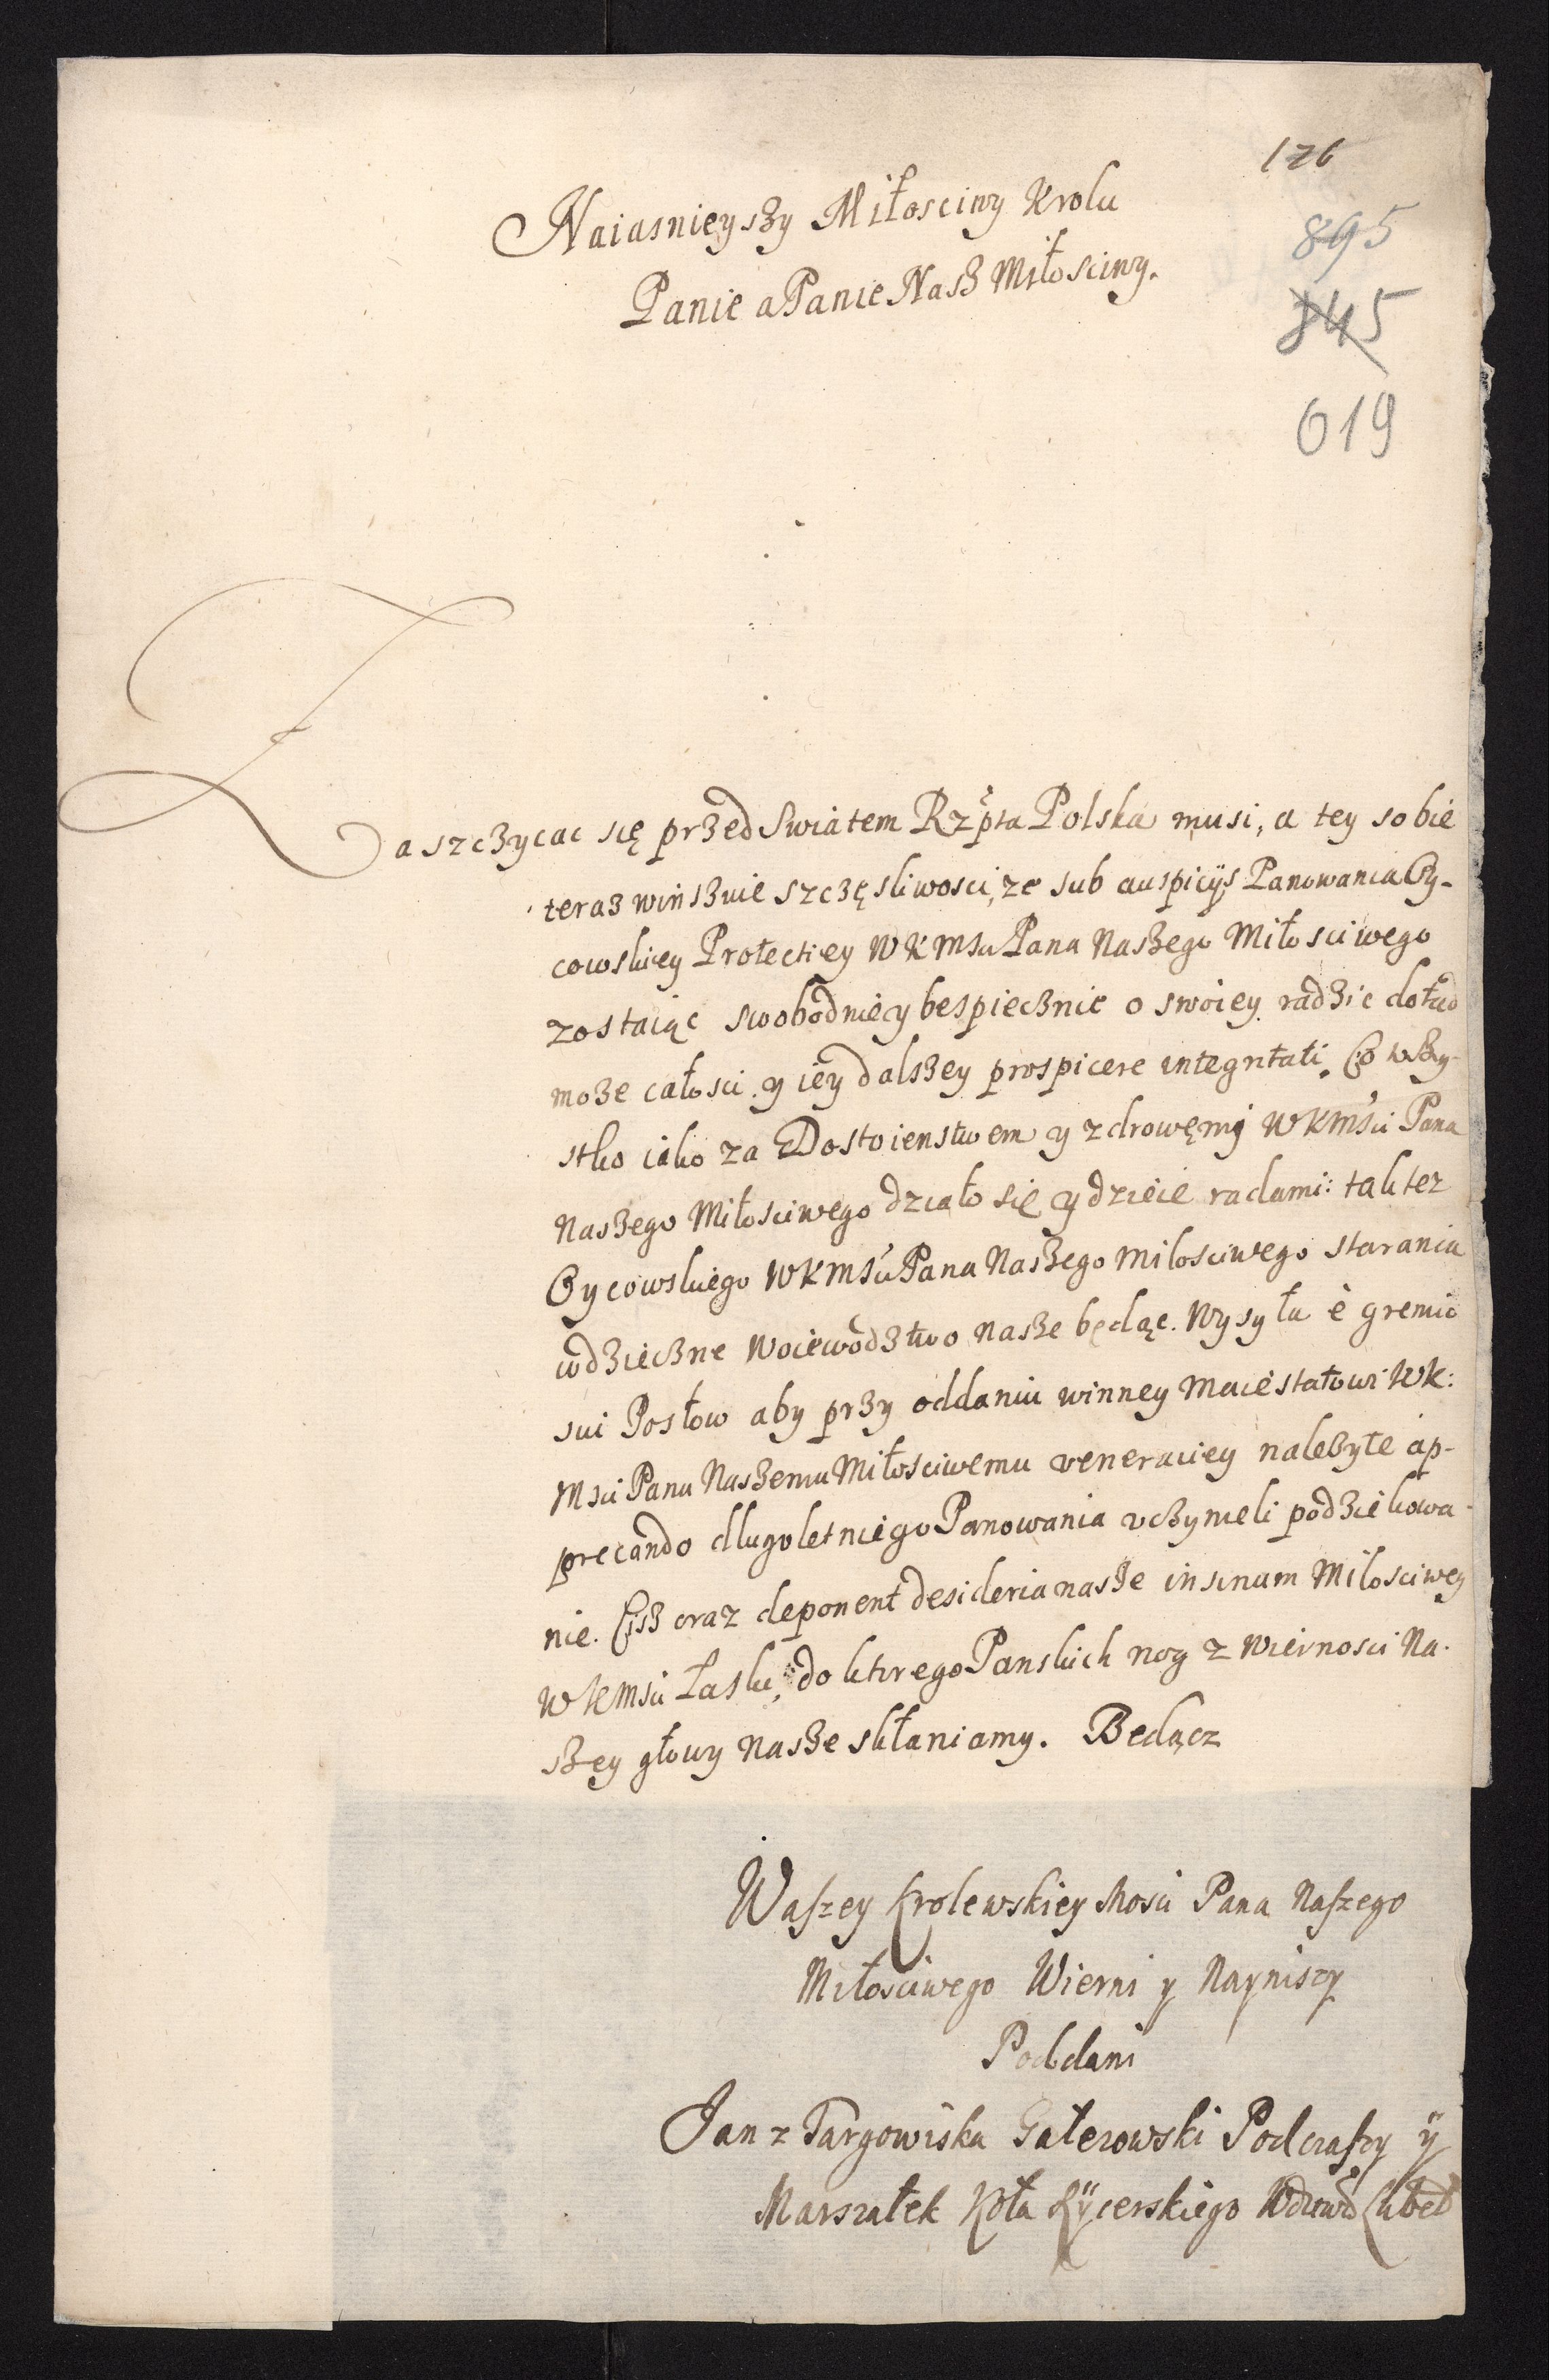 126
Naiasnieyszy Miłosciwy Krolu
895
Panie a Panie Nasz Miłosciwy.
845
619
Zaszczycac się przed Swiatem Rzpta Polska musi, a tey sobie
teraz winszuie szczęsliwosci, ze sub auspicijs Panowania Oy-
cowskiey Protectiey WKMsci Pana Naszego Miłosciwego
zostaiąc swobodnie y bespiecznie o swoiey radzic dotąd
moze całosci y iey dalszey prospicere integritati. Co wszy-
stko iako za Dostoienstwem y zdrowęmi WKMsci Pana
Naszego Miłosciwego działo się y dzieie radami: tak tez
Oycowskiego WKMsci Pana Naszego Miłosciwego starania
wdzieczne Woiewodztwo nasze będąc. Wysyła è gremio
sui Posłow aby przy oddaniu winney Maiestatowi WK:
Msci Panu Naszemu Miłosciwemu veneraciey nalezyte ap-
precando dlugoletniego Panowania vczynieli podziekowa-
nie. Ciż oraz deponent desideria nasze in sinum Miłosciwey
WKMsci Łaski, do ktorego Panskich nog z wiernosci Na-
szey głowy nasze skłaniamy. Bedącz
Waszey Krolewskiey Mosci Pana Naszego
Miłosciwego Wierni y Nayniszy
Poddani
Jan z Targowiska Gałezowski Podczaszy ÿ
Marszałek Koła Rÿcerskiego Wdztwa Lubel